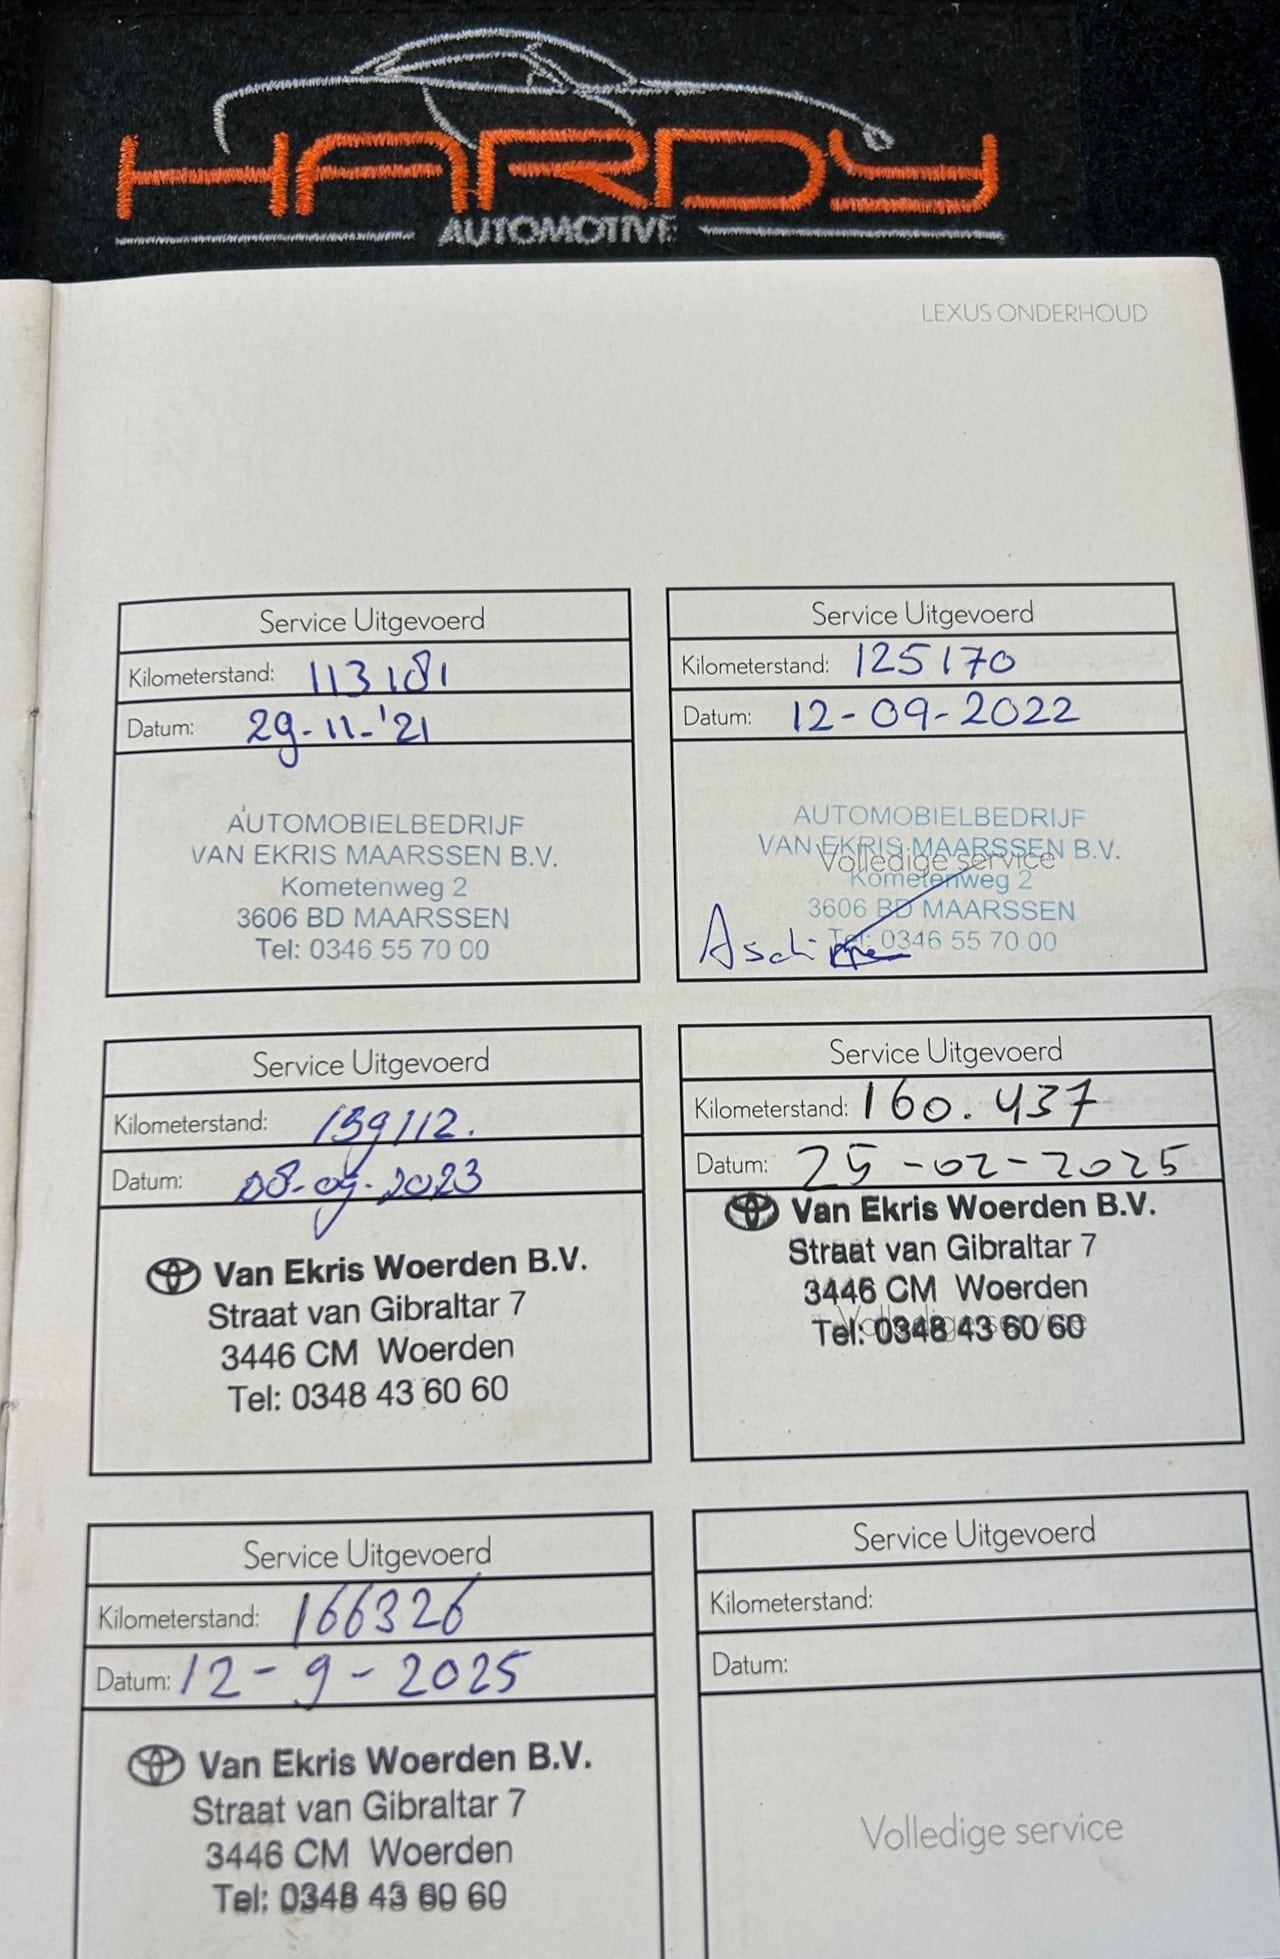 HARDY
AUTOMOTIVE
LEXUS ONDERHOUD
Service Uitgevoerd
Kilometerstand: 113181
Datum: 29-11-'21
AUTOMOBIELBEDRIJF
VAN EKRIS MAARSSEN B.V.
Kometenweg 2
3606 BD MAARSSEN
Tel: 0346 55 70 00
Service Uitgevoerd
Kilometerstand: 125170
Datum: 12-09-2022
AUTOMOBIELBEDRIJF
VAN EKRIS MAARSSEN B.V.
Volledige service
Kometenweg 2
3606 BD MAARSSEN
Tel: 0346 55 70 00
Service Uitgevoerd
Kilometerstand: 139112.
Datum: 08-09-2023
Van Ekris Woerden B.V.
Straat van Gibraltar 7
3446 CM Woerden
Tel: 0348 43 60 60
Service Uitgevoerd
Kilometerstand: 160.437
Datum: 25-02-2025
Van Ekris Woerden B.V.
Straat van Gibraltar 7
3446 CM Woerden
Volledige service
Tel: 0348 43 60 60
Service Uitgevoerd
Kilometerstand: 166326
Datum: 12-9-2025
Van Ekris Woerden B.V.
Straat van Gibraltar 7
3446 CM Woerden
Tel: 0348 43 60 60
Service Uitgevoerd
Kilometerstand:
Datum:
Volledige service